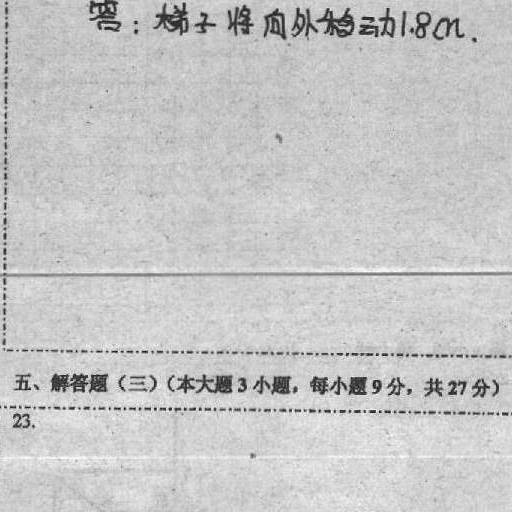 答：梯子将向外移动1.8cm.
五、解答题（三）（本大题 3 小题，每小题 9 分，共 27 分）
23.